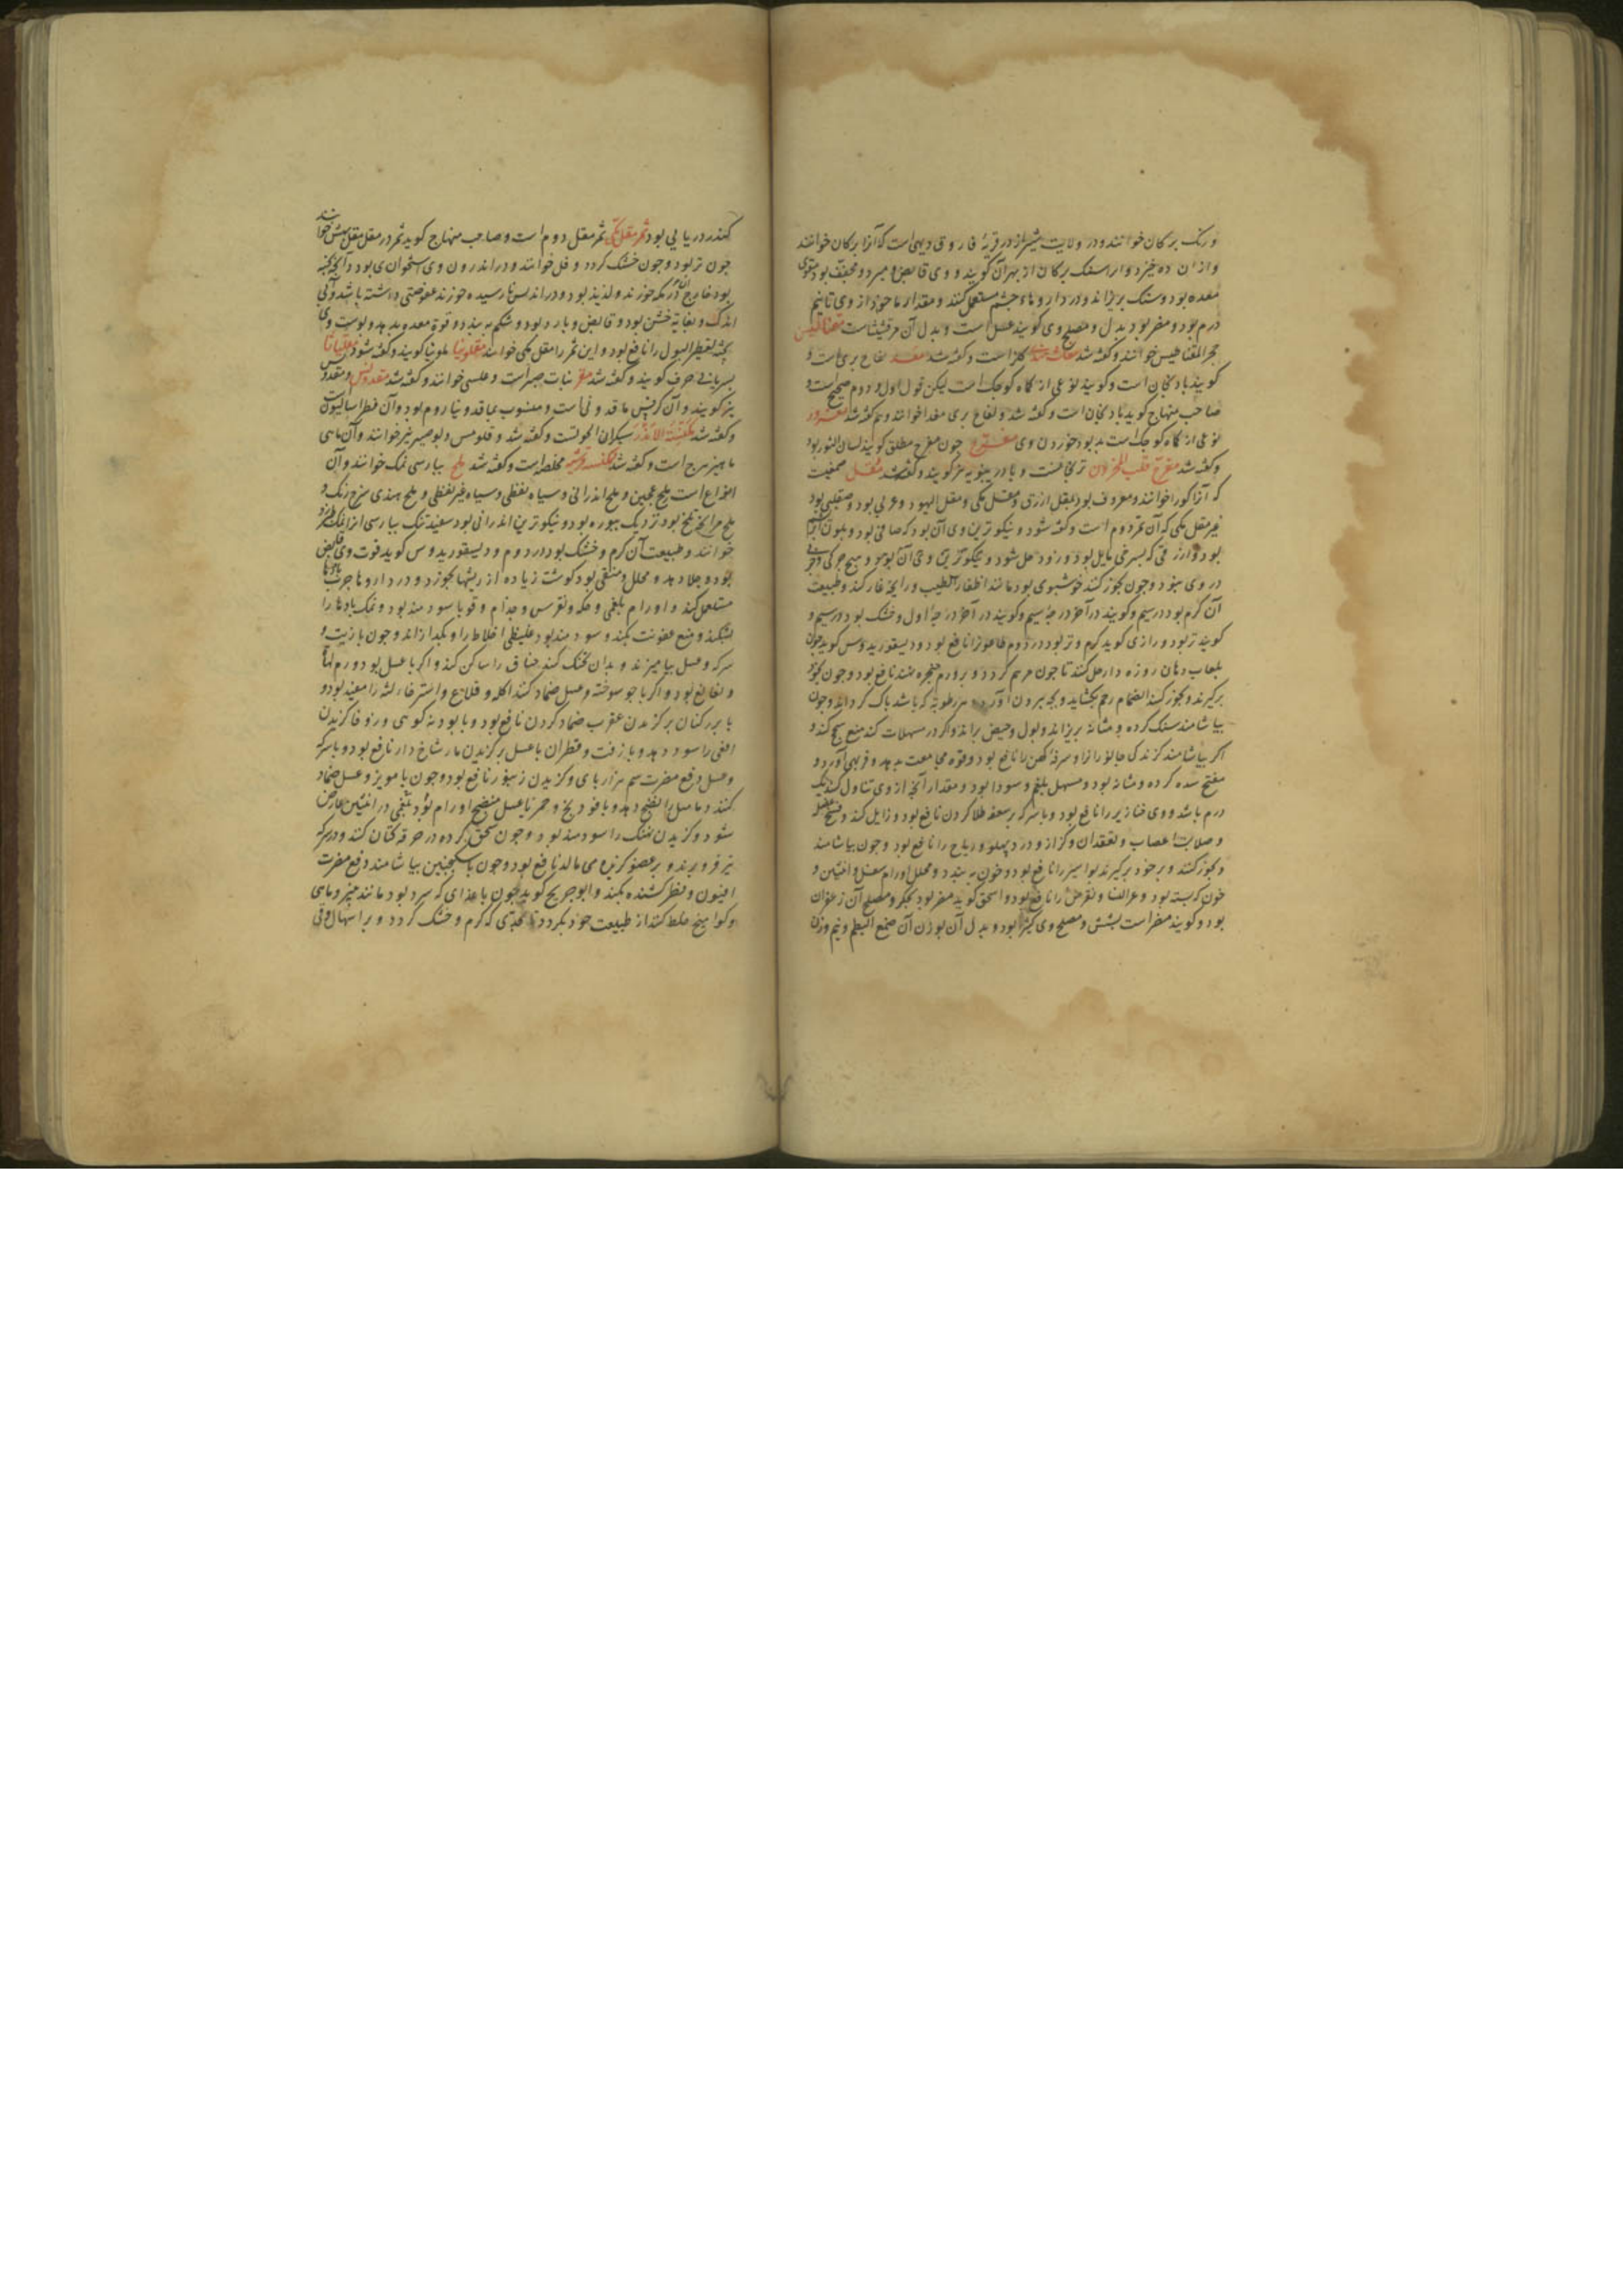 و رنگ برکان خوانند و در ولایت شیراز در قریهٔ فاروق دیهی است که آنرا برکان خوانند
و از ان ده خیزد و از سنک برکان از بهر آن کویند و وی قابض و مبرد و مجفف بود مقوی
معده بود و سنک بریزاند و در داروهاء چشم مستعمل کنند و مقدار ماخوذ از وی تا نیم
درم بود و مضر بود بدل و مصلح وی کویند عسل است و بدل آن مرقشیثا است مغناطیس
حجر المغناطیس خوانند و کفته شد کزا است و کفته شد مغد لفاح بری است و
کویند بادنجان است و کویند نوعی از کماه کوچک است لیکن قول اول و دوم صحیح است و
صاحب منهاج کوید بادنجان است و کفته شد و لفاح بری مغد خوانند و هم کفته شد مغرود
نوعی از کماه کوچک است بد بود خوردن وی مفرح چون مفرح مطلق کویند لسان الثور بود
و کفته شد مفرح قلب المحزون ترنجانست و بادرنبویه نیز کویند و کفته شد مقل صمغیست
که آنرا کور خوانند و معروف بود بمقل ازرق و مقل مکی و مقل الیهود و عربی بود و صقلبی بود
غیر مقل مکی که آن ثمر دوم است و کفته شود و نیکوترین وی آن بود که صافی بود و بلون
بود و ازرقی که بسرخی مایل بود و زود حل شود و نیکوترین وی آن بود و هیچ چرکی و
در وی نبود و چون بخور کنند خوشبوی بود مانند اظفار الطیب و رایحه غار کند و طبیعت
آن کرم بود در سیم و کویند در آخر درجه سیم و کویند در آخر درجه اول و خشک بود در سیم و
کویند تر بود و رازی کوید کرم و تر بود در دوم طاعونرا نافع بود و دیسقوریدوس کوید چون
بلعاب دهان روزه دار حل کنند تا چون مرهم کردد و بر ورم حنجره نهند نافع بود و چون بخور
برکیرند و بخور کنند انضمام رحم بکشاید و بچه بیرون آورد و هر رطوبة که باشد پاک کرداند و چون
بیاشامند سنک کرده و مثانه بریزاند و بول و حیض براند و اکر در مسهلات کنند منع سحج کند و
اکر بیاشامند کزندکی جانوران را و سرفهٔ کهن را نافع بود و قوه مجامعت بدهد و فربهی آورد و
مفتح سده کرده و مثانه بود و مسهل بلغم و سودا بود و مقدار آنچه از وی تناول کنند یک
درم باشد و وی خنازیر را نافع بود و با سرکه بر سعفه طلا کردن نافع بود و زایل کند و
و صلابت اعصاب و تعقد آن و کزاز و درد پهلو و ریاح را نافع بود و چون بیاشامند
و بخور کنند و بر خود برکیرند بواسیر را نافع بود و خون ببندد و محلل اورام سفل و انثیین و
خون که بسته بود و عرق النسا و نقرس را نافع بود و اسحق کوید مضر بود بجکر و مصلح آن زعفران
بود و کویند مضر است بشش و مصلح وی کثیرا بود و بدل آن بوزن آن صمغ البطم و نیم وزن
کندر دریایی بود ثمر مقل مکی ثمر مقل دوم است و صاحب منهاج کوید ثمر در مقل مقل مکش خوانند
چون تر بود و چون خشک کردد و قل خوانند و در اندرون وی استخوان بود و آنچه
بود خارج آنکه خورند و لذیذ بود و در اندلس نارسیده خورند عفوصتی داشته باشد و آبی
اندک و بغایة خشن بود و قابض و بارد بود و شکم ببندد و قوة معده بدهد و پوست وی
تقطیر البول را نافع بود و این ثمر را مقل مکی خوانند مقلونیا ملونیا کویند و کفته شود مقلیاثا
بسریانی حرف کویند و کفته شد مقر نبات صبر است و علسی خوانند و کفته شد مقدونس و مقدونس
نیز کویند و آن کرفس ماقدونی است و منسوب بماقدونیا روم بود و آن فطراسالیون است
و کفته شد مکنسة الاندر سیکران الحوت است و کفته شد و قلومس و بوصیر نیز خوانند و آن ماهی
ماهیزهرج است و کفته شد مکنسه قرشیه مخلصه است و کفته شد ملح بپارسی نمک خوانند و آن
انواع است ملح عجین و ملح اندرانی و سیاه نفطی و سیاه غیر نفطی و ملح هندی سرخ رنک و
ملح مر آنچه تلخ بود نزدیک ببوره بود و نیکوترین اندرانی بود سفید تنک بپارسی انرا نمک
خوانند و طبیعت آن کرم و خشک بود در دوم و دیسقوریدوس کوید قوت وی قابض
بود و جلا دهد و محلل و منقی بود کوشت زیاده از ریشها بخورد و در داروها جرب
مستعمل کنند و اورام بلغمی و حکه و نقرس و جذام و قوبا سودمند بود و نمک بادها را
بشکند و منع عفونت بکند و سودمند بود غلیظی اخلاط را و بکدازاند و چون با زیت و
سرکه و عسل بیامیزند و بدان تحنک کنند خناق را ساکن کند و اکر با عسل بود ورم لهاة
و نغانغ بود و اکر با جو سوخته و عسل ضماد کنند آکله و قلاع و استرخاء لثه را مفید بود و
با بزر کتان بر کزیدن عقرب ضماد کردن نافع بود و با پودنه کوهی و زوفا کزیدن
افعی را سود دهد و با زفت و قطران با عسل بر کزیدن مار شاخ دار نافع بود و با سرکه
و عسل دفع مضرت سم هزارپای و کزیدن زنبور نافع بود و چون با مویز و عسل ضماد
کنند دمامیل را نضج دهد و با فودنج و خمر با عسل منضج اورام بود بلغمی در انثیین عارض
شود و کزیدن نهنک را سودمند بود و چون سحق کرده در خرقه کتان کنند و در سرکه
تیز فرو برند و بر عضو کزیده می مالند نافع بود و چون با سکنجبین بیاشامند دفع مضرت
افیون و فطر کشنده بکند و ابو جریح کوید چون با غذای که سرد بود مانند پنیر و ماهی
و کوامیخ خلط کنند از طبیعت خود بکردد تا بحدی که کرم و خشک کردد و بر اسهال و قی